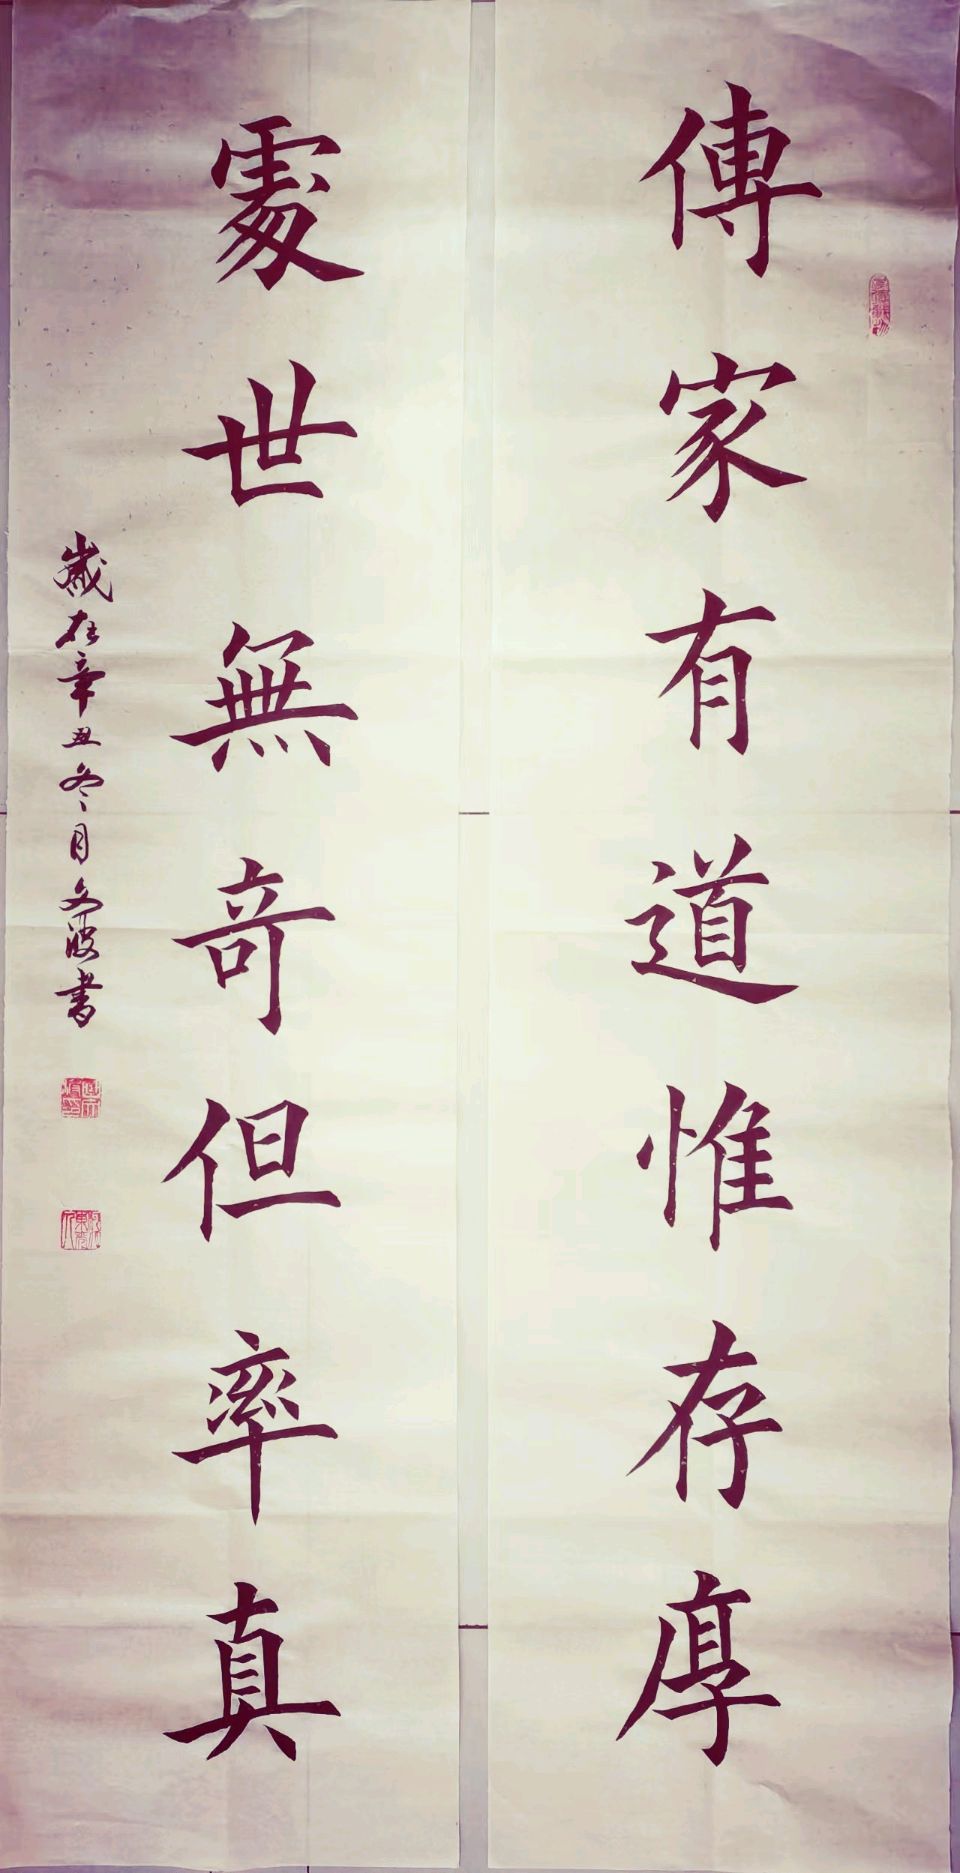 傳家有道惟存厚
處世無奇但率真
歲在辛丑冬月文波書